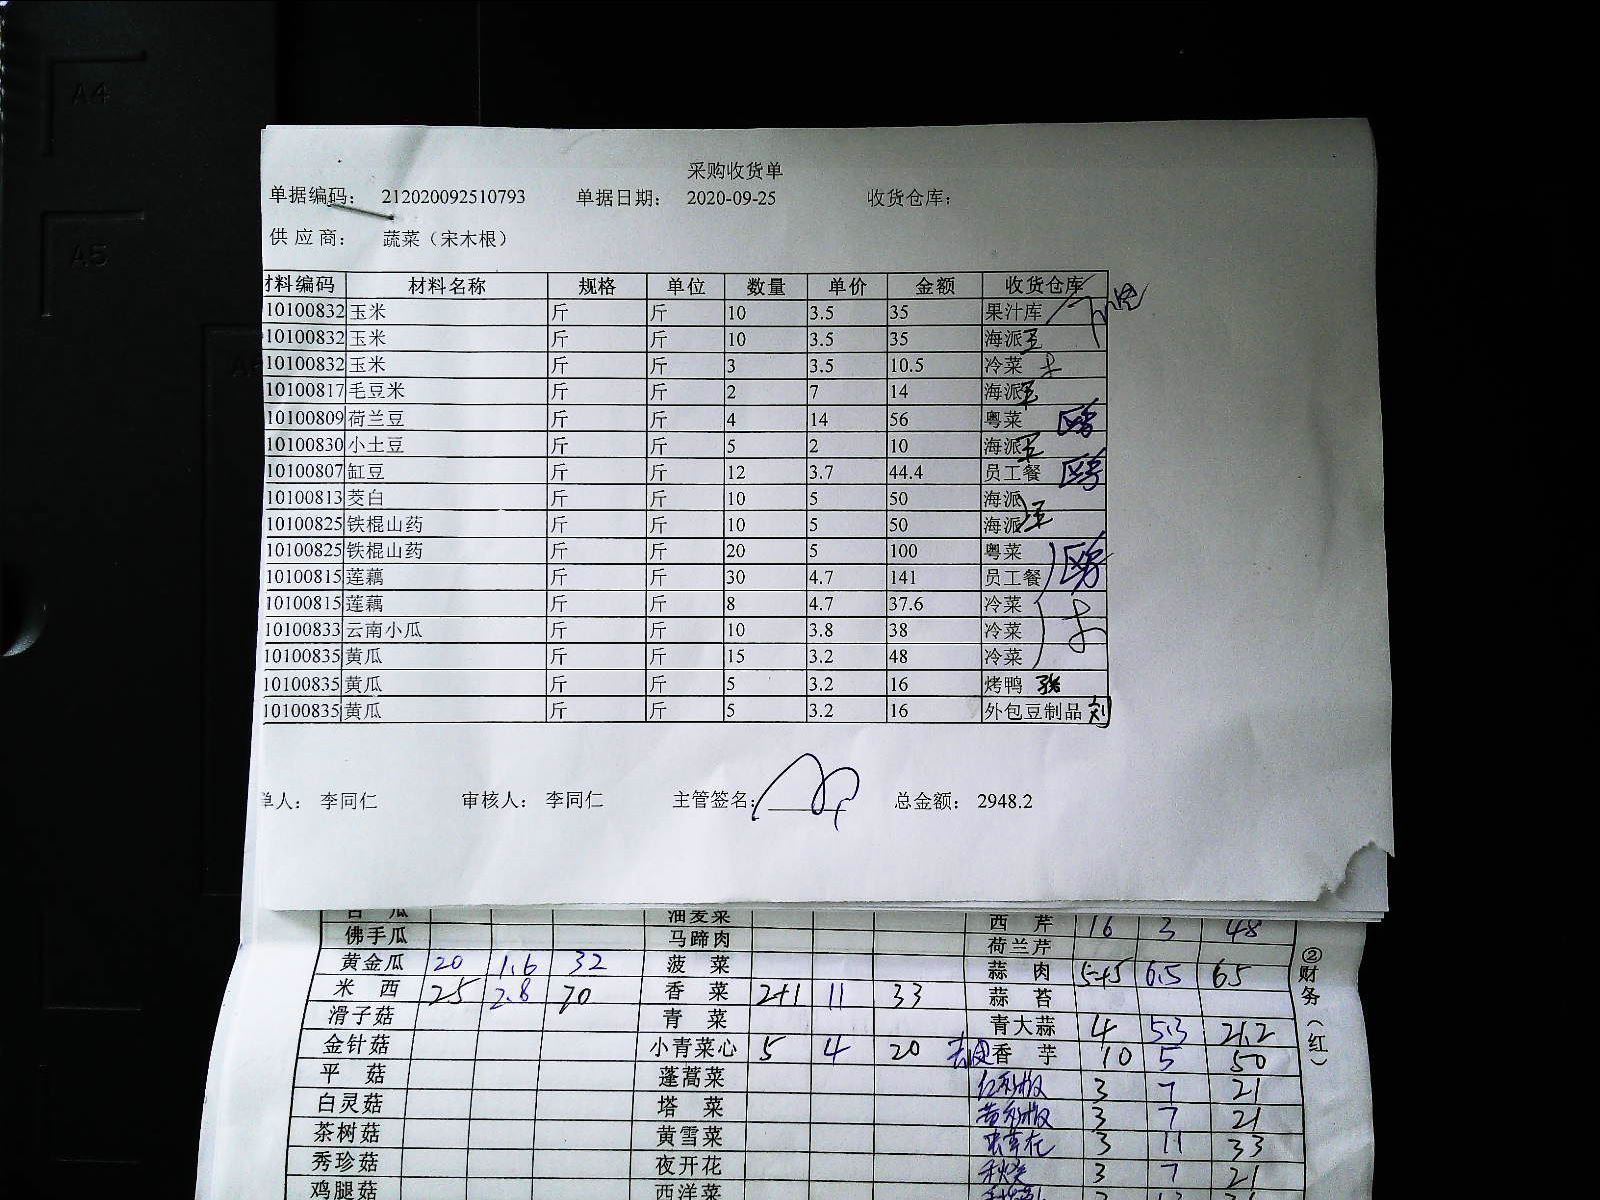 A4
A5
采购收货单
单据编码： 212020092510793 单据日期： 2020-09-25 收货仓库：
供应商： 蔬菜（宋木根）
材料编码 材料名称 规格 单位 数量 单价 金额 收货仓库
10100832 玉米 斤 斤 10 3.5 35 果汁库
10100832 玉米 斤 斤 10 3.5 35 海派 王
10100832 玉米 斤 斤 3 3.5 10.5 冷菜
10100817 毛豆米 斤 斤 2 7 14 海派 王
10100809 荷兰豆 斤 斤 4 14 56 粤菜
10100830 小土豆 斤 斤 5 2 10 海派 王
10100807 缸豆 斤 斤 12 3.7 44.4 员工餐
10100813 茭白 斤 斤 10 5 50 海派
10100825 铁棍山药 斤 斤 10 5 50 海派 王
10100825 铁棍山药 斤 斤 20 5 100 粤菜
10100815 莲藕 斤 斤 30 4.7 141 员工餐
10100815 莲藕 斤 斤 8 4.7 37.6 冷菜
10100833 云南小瓜 斤 斤 10 3.8 38 冷菜
10100835 黄瓜 斤 斤 15 3.2 48 冷菜
10100835 黄瓜 斤 斤 5 3.2 16 烤鸭 张
10100835 黄瓜 斤 斤 5 3.2 16 外包豆制品 刘
单人： 李同仁 审核人： 李同仁 主管签名： 总金额： 2948.2
白瓜 油麦菜 西芹 16 3 48
佛手瓜 马蹄肉 荷兰芹
黄金瓜 20 1.6 32 菠菜 蒜肉 5+5 6.5 65
米西 25 2.8 70 香菜 2+1 11 33 蒜苔
滑子菇 青菜 青大蒜 4 5.3 21.2
金针菇 小青菜心 5 4 20 去皮香芋 10 5 50
平菇 蓬蒿菜 红彩椒 3 7 21
白灵菇 塔菜 黄彩椒 3 7 21
茶树菇 黄雪菜 虫草花 3 11 33
秀珍菇 夜开花 秋葵 3 7 21
鸡腿菇 西洋菜
②财务（红）